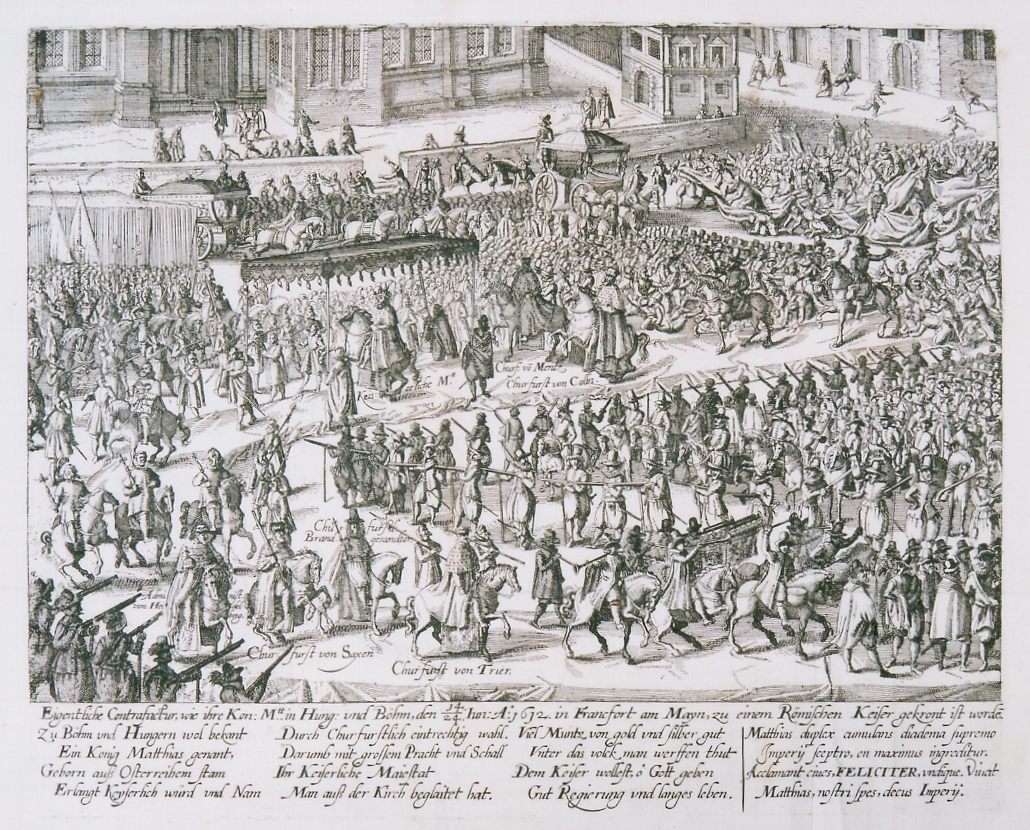 Churf: vō Mentz
Churfurst von Coln.
Key erliche M.t
Chur furstl
Brand gesandter
Adm
von
Chur furst von Saxen
Churfurst von Trier.
Eigentliche Contrafactur, wie ihre Kon: M.tt in Hung: vnd Böhm, den 14/24 Iun: A.o 1612. in Francfort am Mayn, zu einem Römischen Keiser gekront ist worde.
Zu Böhm vnd Hungern wol bekant
Ein Konig Matthias genant,
Geborn auß Osterreihem stam
Erlangt Keyserlich würd vnd Nam
Durch Churfurstlich eintrechtig wahl.
Darumb mit grossem Pracht vnd Schall
Ihr Keiserliche Maiestat
Man auß der Kirch beglaitet hat.
Viel Muntz von gold vnd silber gut
Vnter das volck man werffen thut
Dem Keiser wollest, ô Gott geben
Gut Regierung vnd langes leben.
Matthias duplex cumulans diadema supremo
Imperij sceptro, en maximus ingreditur.
Acclamant ciues, FELICITER, vndique. Viuat
Matthias, nostri spes, decus Imperij.